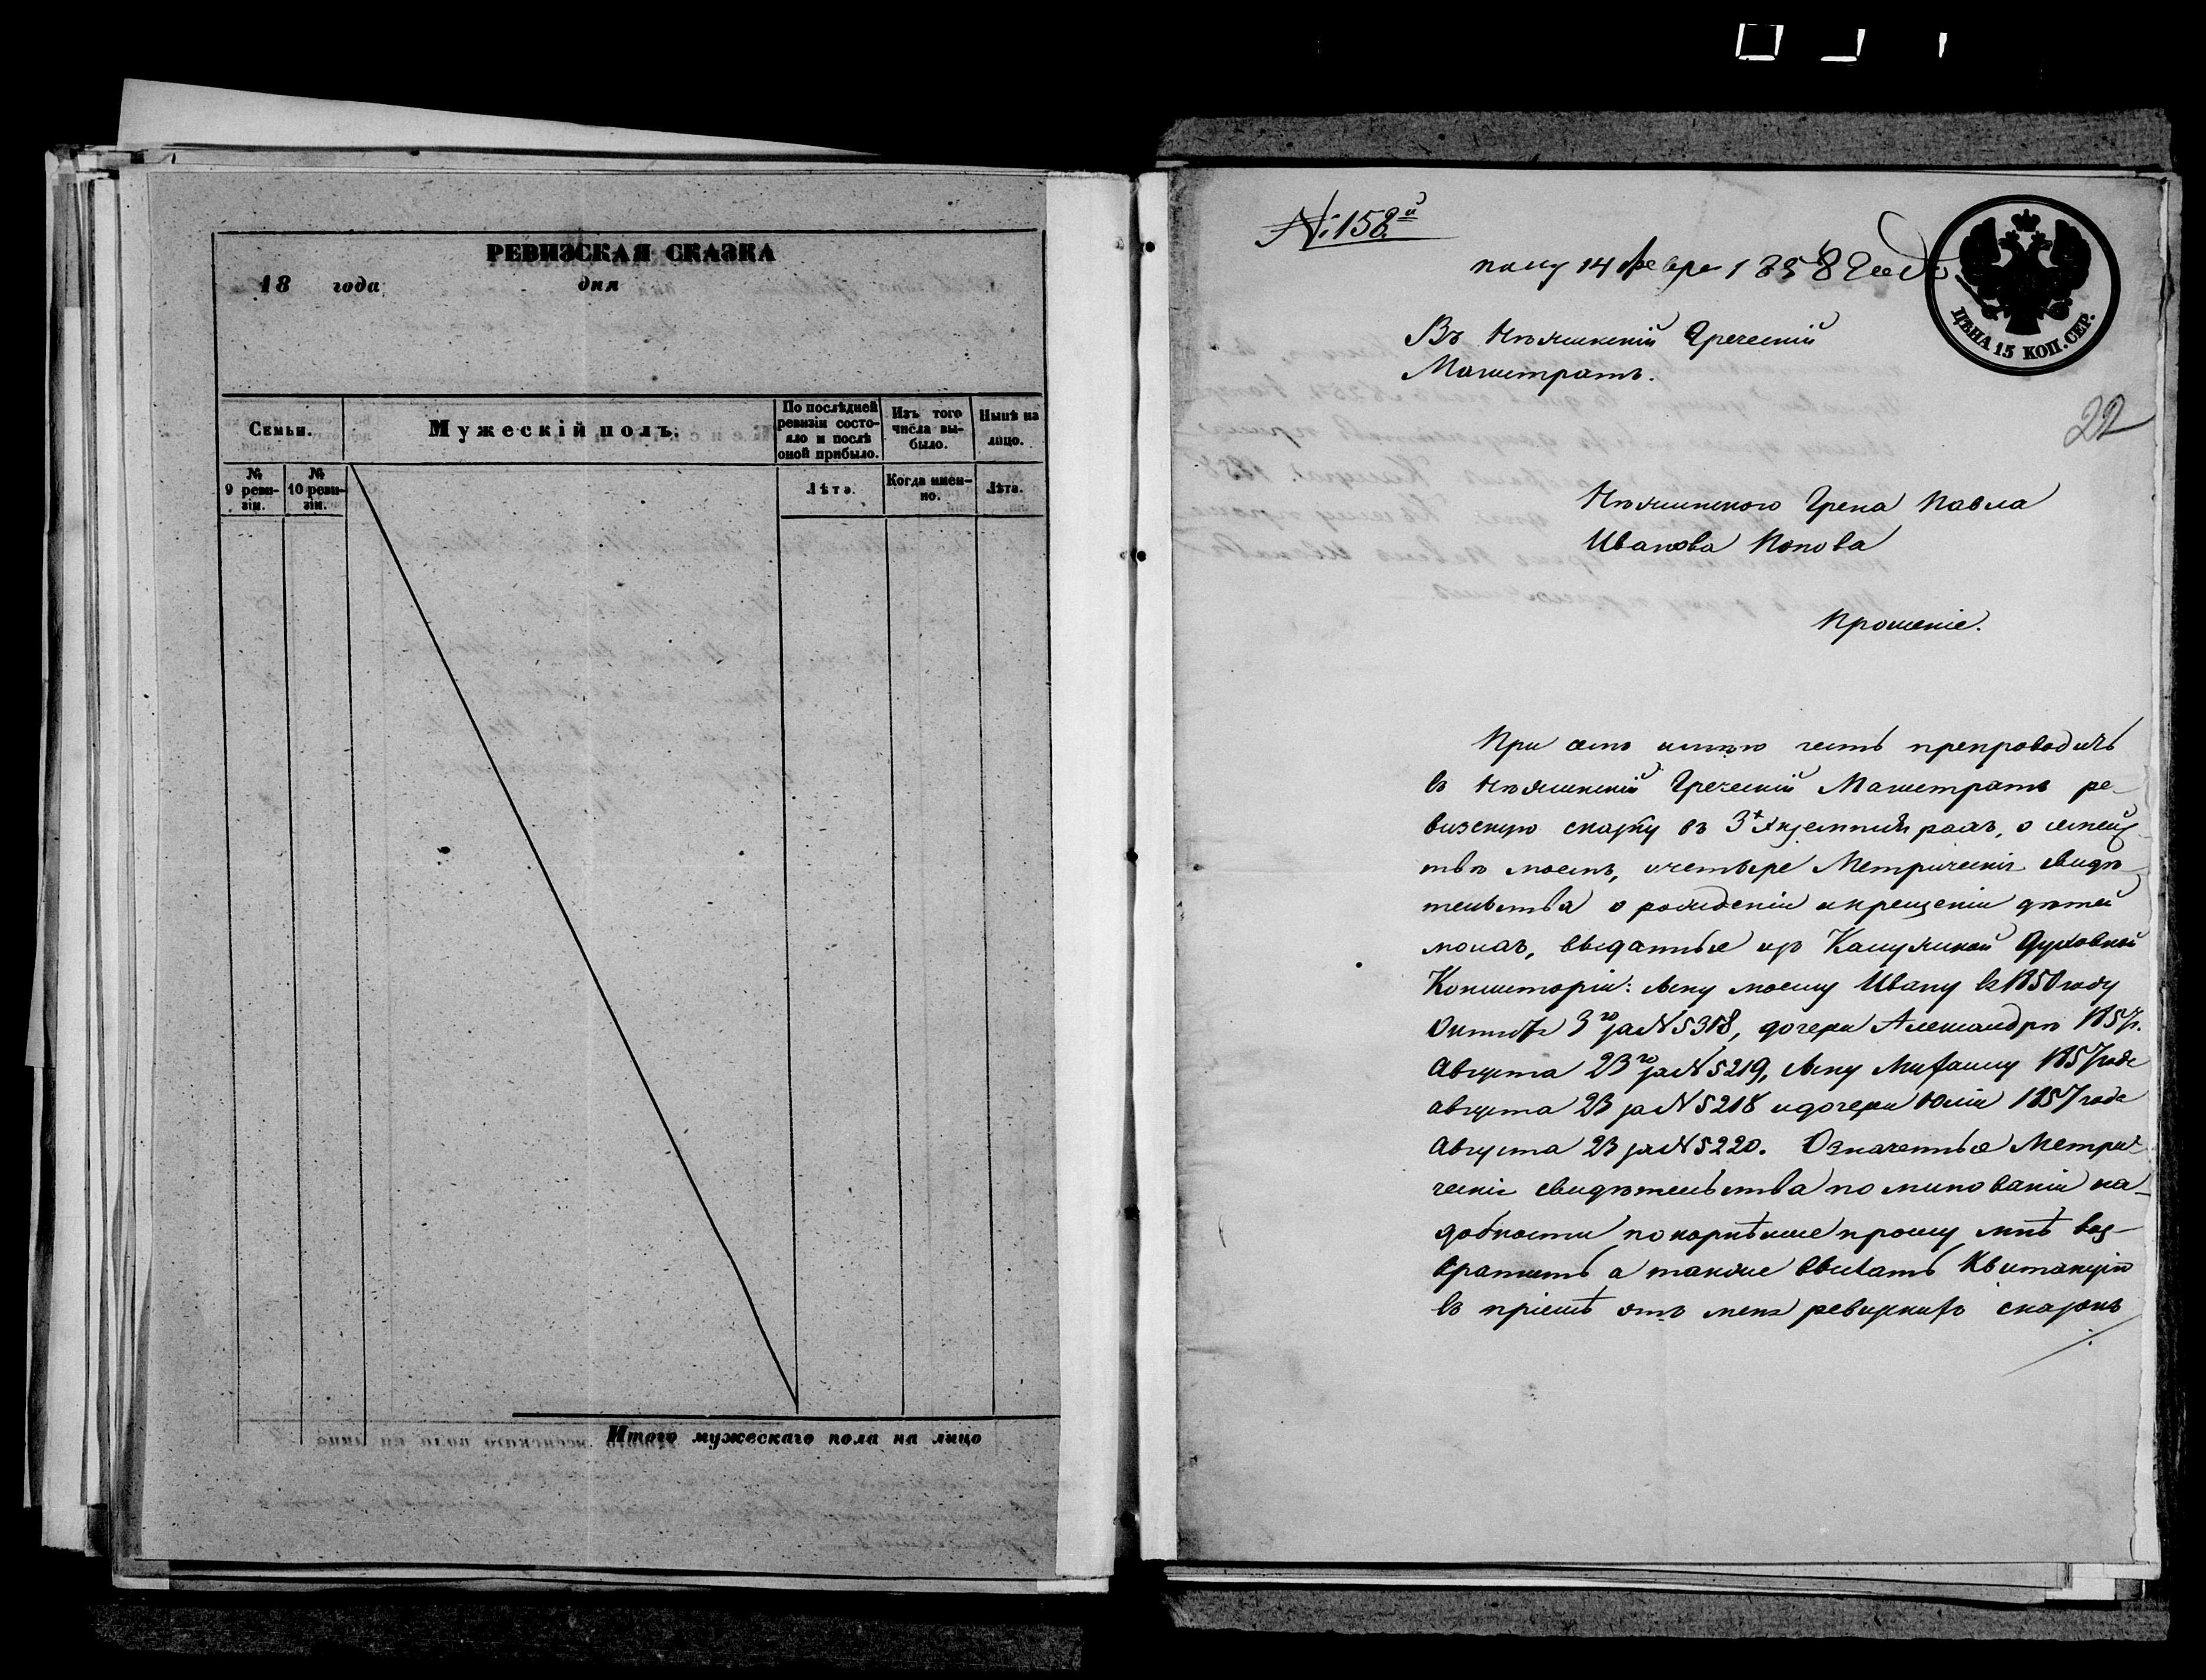 РЕВИЗСКАЯ СКАЗКА
18 года дня
Семьи.
Мужескій полъ.
По послѣдней ревизіи состо-
яло и послѣ
оной прибыло.
Изъ того
числа вы-
было.
Нынѣ на
лицо.
№
9 реви-
зіи.
№
10 реви-
зіи.
Лѣта.
Когда имен-
но.
Лѣта.
Итого мужескаго пола на лицо
№ 158й
полу 14 февра 1858 года
ЦѢНА 15 КОП. СЕР.
Въ Нѣжинскій Греческій
Магистратъ.
22
Нѣжинского Грека Павла
Иванова Попова
Прошеніе.
При семъ имѣю честь препроводить
въ Нѣжинскій Греческій Магистратъ ре-
визскую сказку въ 3х экземплярахъ, о семейс
твѣ моемъ, и четыре Метрическія свидѣ-
тельства о рожденіи и крещеніи дѣтей
моихъ, выданные изъ Калужской Духовной
Консисторіи: сыну моему Ивану въ 1850 году
Октября 3го за № 5318, дочери Александрѣ 1857 г.
Августа 23го за № 5219, сыну Михаилу 1857 года
августа 23 за № 5218 и дочери Юліи 1857 года
Августа 23 за № 5220. Означенные Метри
ческія свидѣтельства по минованіи на-
добности покорнѣйше прошу мнѣ воз-
вратить а также выдать Квитанцію
въ пріемѣ отъ меня ревизкихъ сказокъ